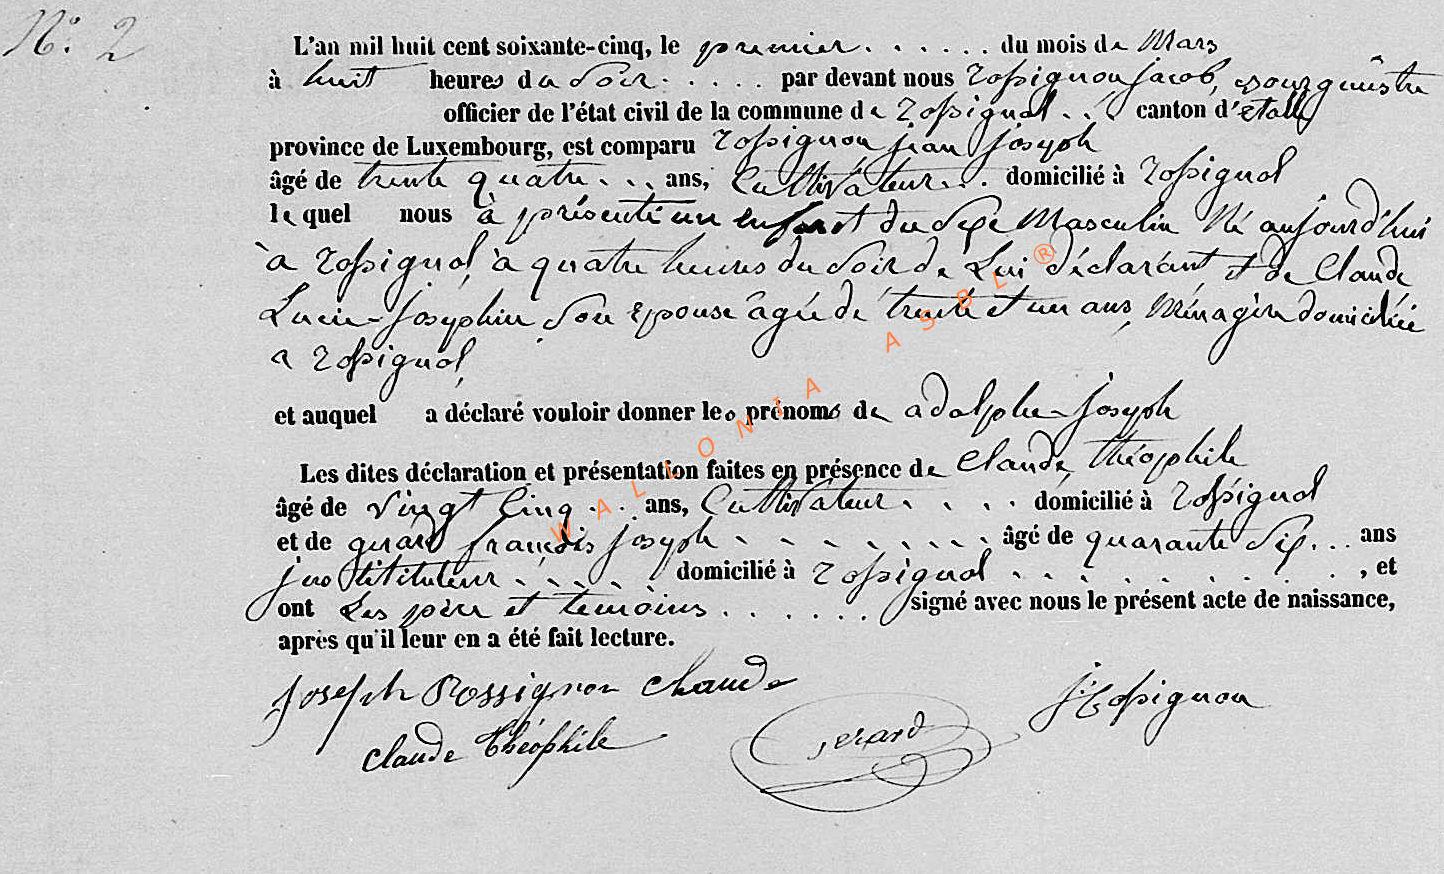 N° 2
L'an mil huit cent soixante-cinq, le premier . . . . . . du mois de Mars
à huit heures du Soir . . . . . par devant nous Rossignon jacob, Bourgmestre
officier de l'état civil de la commune de Rossignol . . canton d'étalle
province de Luxembourg, est comparu Rossignon jean joseph
âgé de trente quatre . . . ans, Cultivateur . . domicilié à Rossignol
lequel nous à présenté un enfant du Sexe Masculin Né aujourd'hui
à Rossignol à quatre heures du Soir de Lui déclarant et de Claude
Lucie-Josephine Son Epouse âgée de trente et un ans, Ménagère domiciliée
a Rossignol,
et auquel a déclaré vouloir donner les prénoms de adolphe-joseph
Les dites déclaration et présentation faites en présence de Claude théophile
âgé de vingt Cinq . . . ans, Cultivateur . . . . domicilié à Rossignol
et de gerard françois joseph . . . . . . . . . âgé de quarante Six . . . ans
jnstituteur . . . . . domicilié à Rossignol . . . . . . . . . , et
ont Les père et temoins . . . . . . . signé avec nous le présent acte de naissance,
après qu'il leur en a été fait lecture.
Joseph Rossignon Claude
J: Rossignon
Claude Théophile
gerard
WALLONIA ASBL ®